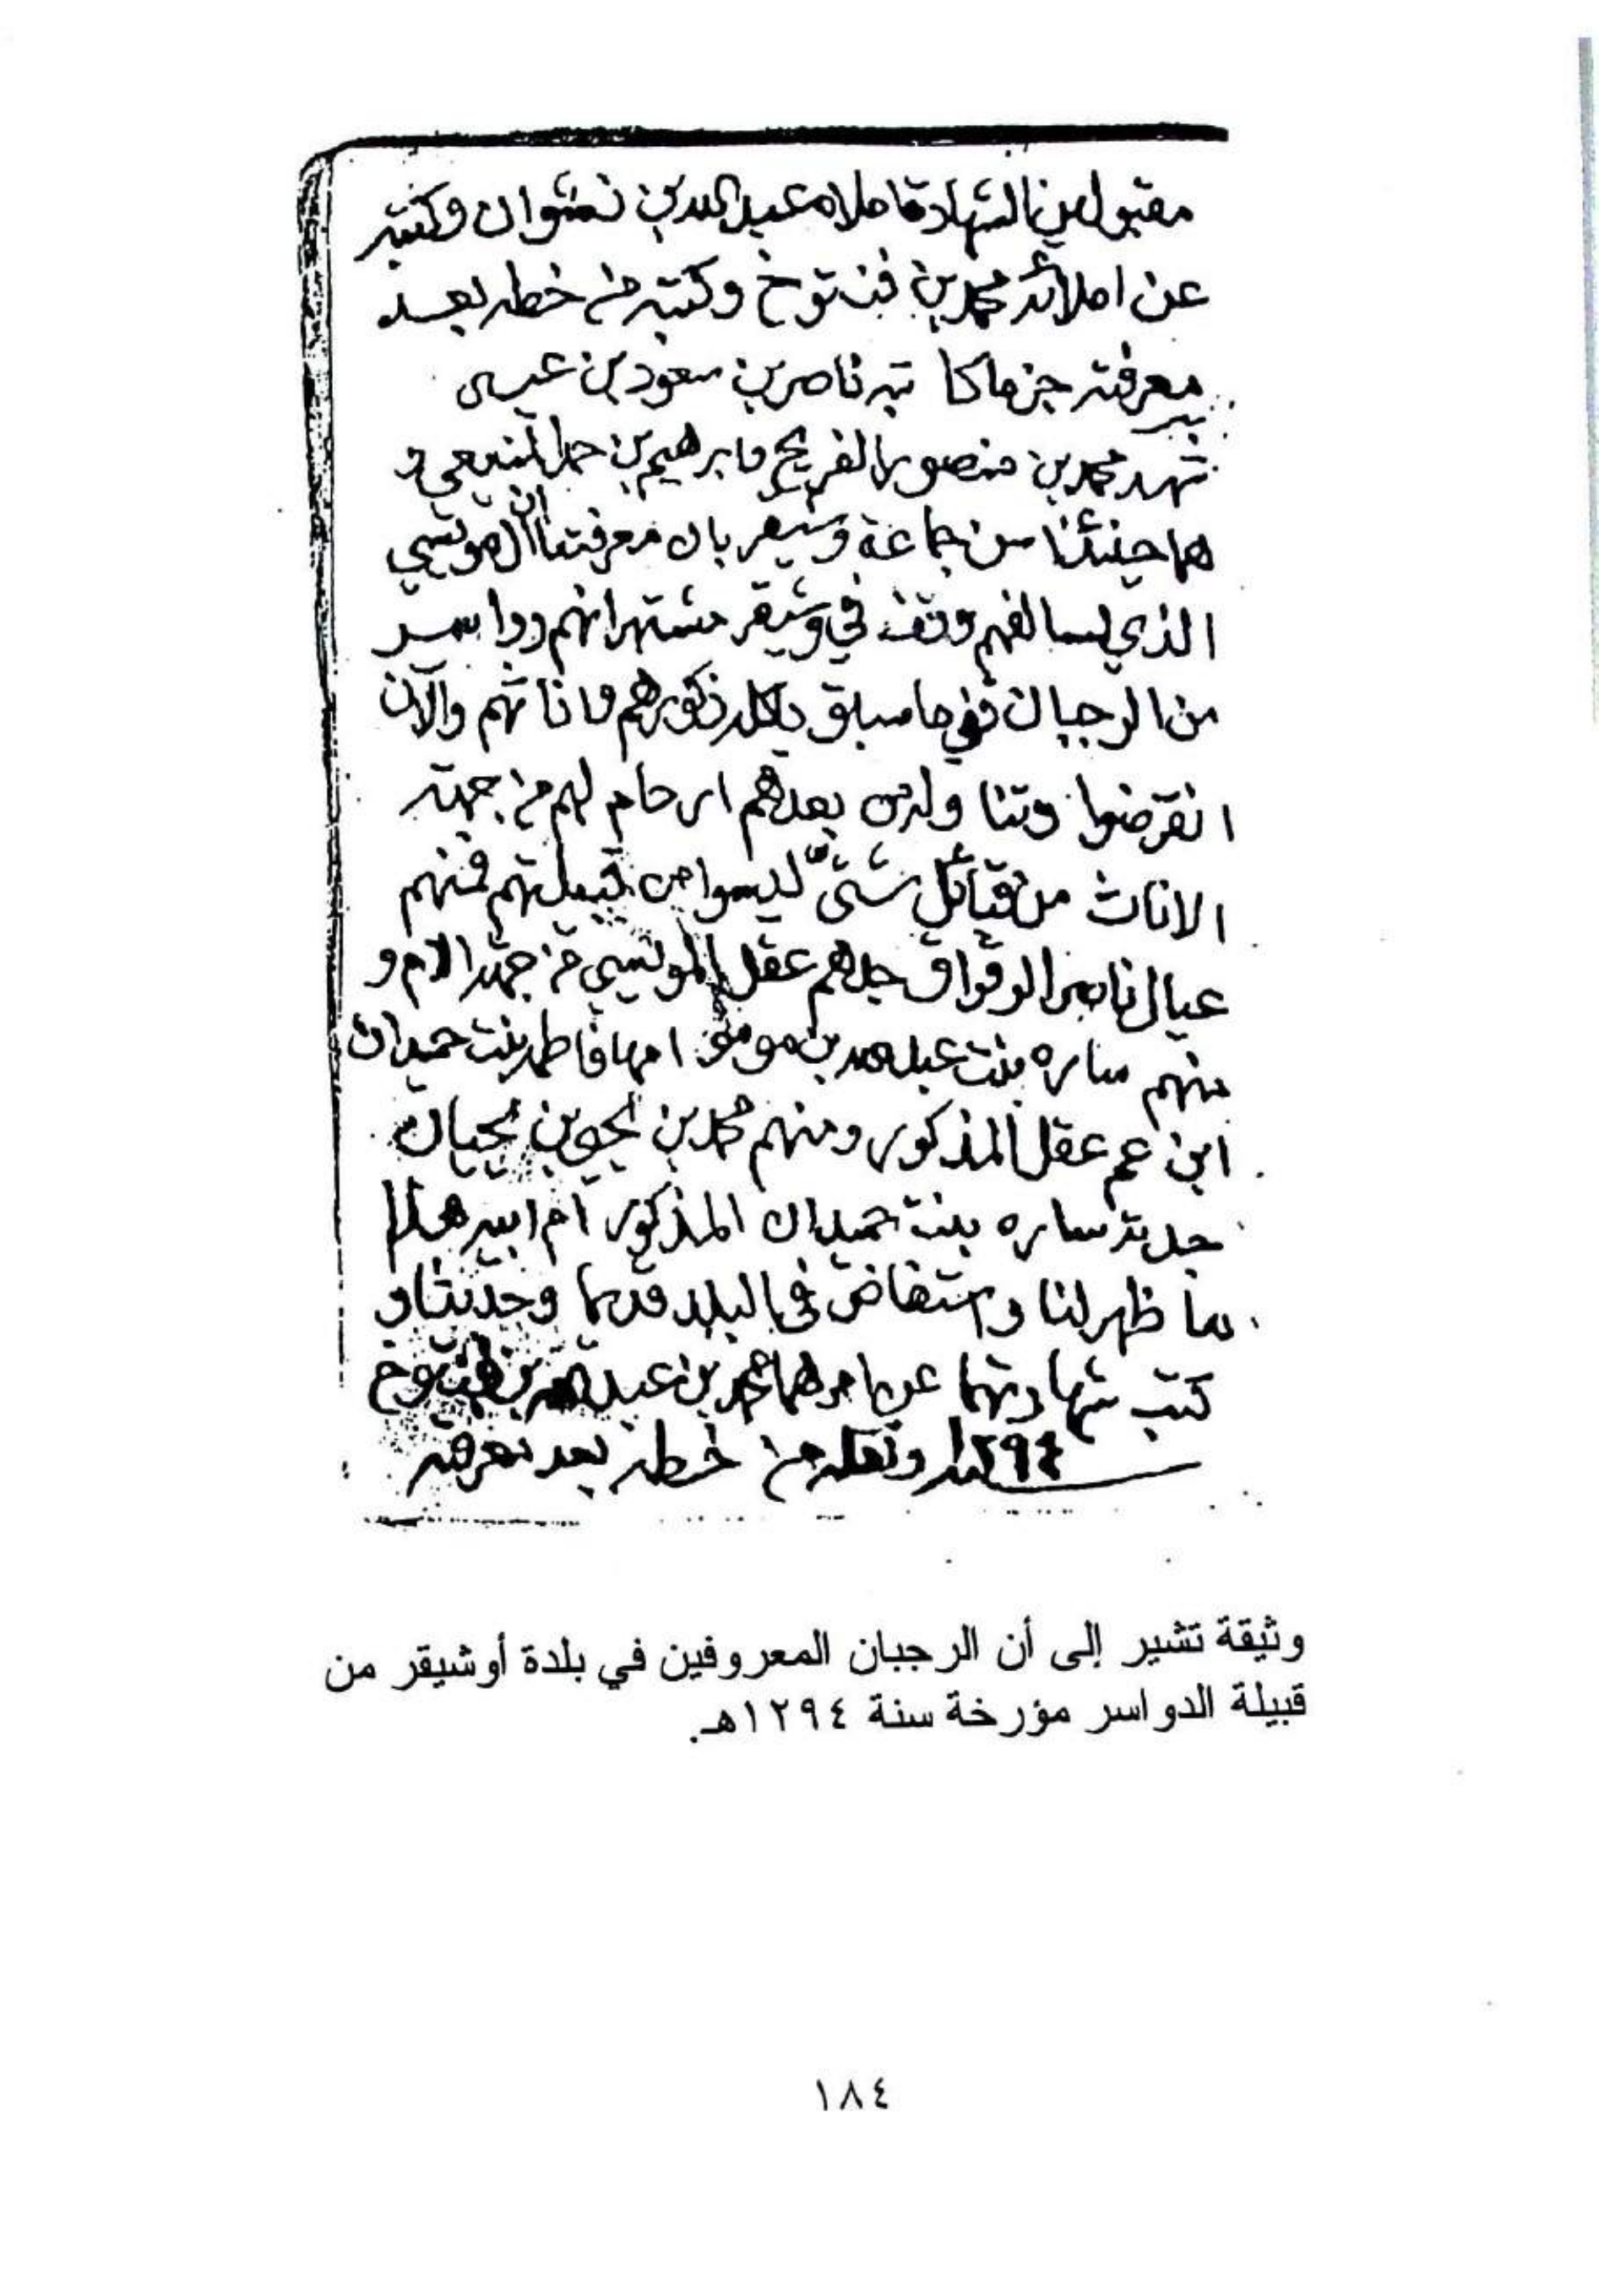 مقبولين الشهادة املاه عبد الله بن نشوان وكتبه
عن املائه محمد بن فنتوخ وكتبه من خطه بعد
معرفته جزما كاتبه ناصر بن سعود بن عيسى
شهد محمد بن منصور الفريح وابرهيم بن حمد المنيعي و
هما حينئذ من جماعة وشيقر بان معرفتنا ان الموتسي
الذي لسالفهم وقف في وشيقر مشتهر انهم دواسر
من الرجبان ففي ما سبق ذكورهم واناثهم والآن
انقرضوا وتنا بعدهم ارحام لهم من جهة
الاناث من قبائل شتى ليسوا من قبيلتهم فمنهم
عيال ناصر الوقواق جدهم عقل الموتسي من جهة الام و
منهم ساره بنت عبد الله بن امها فاطمه بنت حميدان
ابن عم عقل المذكور ومنهم محمد بن يحيى بن يحيان
جدته ساره بنت حميدان المذكور ام ابيه هذا
ما ظهر لنا واستفاض في البلد قديما وحديثا و
كتب شهادتهما عن امرهما محمد بن عبد الله بن فنتوخ
١٢٩٤ ونقله من خطه بعد معرفته
وثيقة تشير إلى أن الرجبان المعروفين في بلدة أوشيقر من
قبيلة الدواسر مؤرخة سنة ١٢٩٤هـ.
١٨٤